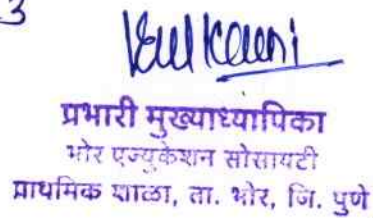 3
Kulkarni
प्रभारी मुख्याध्यापिका
भोर एज्युकेशन सोसायटी
प्राथमिक शाळा, ता. भोर, जि. पुणे